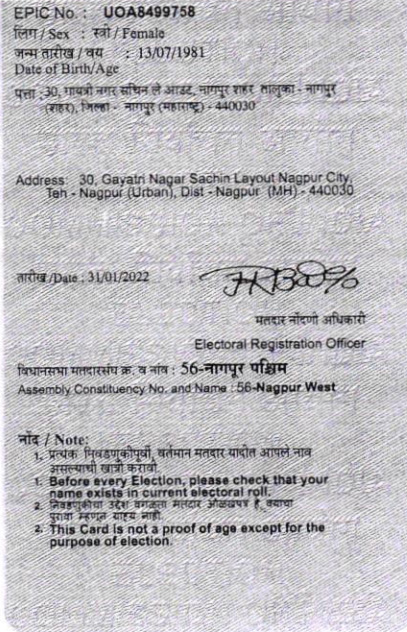 EPIC No. : UOA8499758
लिंग / Sex : स्त्री / Female
जन्म तारीख / वय : 13/07/1981
Date of Birth/Age
पत्ता : 30, गायत्री नगर सचिन ले आउट, नागपुर शहर तालुका - नागपुर
(शहर), जिल्हा - नागपुर (महाराष्ट्र) - 440030
Address: 30, Gayatri Nagar Sachin Layout Nagpur City,
Teh - Nagpur (Urban), Dist - Nagpur (MH) - 440030
तारीख /Date : 31/01/2022
मतदार नोंदणी अधिकारी
Electoral Registration Officer
विधानसभा मतदारसंघ क्र. व नांव : 56-नागपूर पश्चिम
Assembly Constituency No. and Name : 56-Nagpur West
नोंद / Note:
1. प्रत्येक निवडणुकीपूर्वी, वर्तमान मतदार यादीत आपले नाव
असल्याची खात्री करावी.
1. Before every Election, please check that your
name exists in current electoral roll.
2. निवडणुकीचा उद्देश वगळता मतदार ओळखपत्र हे, वयाचा
पुरावा म्हणून ग्राह्य नाही.
2. This Card is not a proof of age except for the
purpose of election.